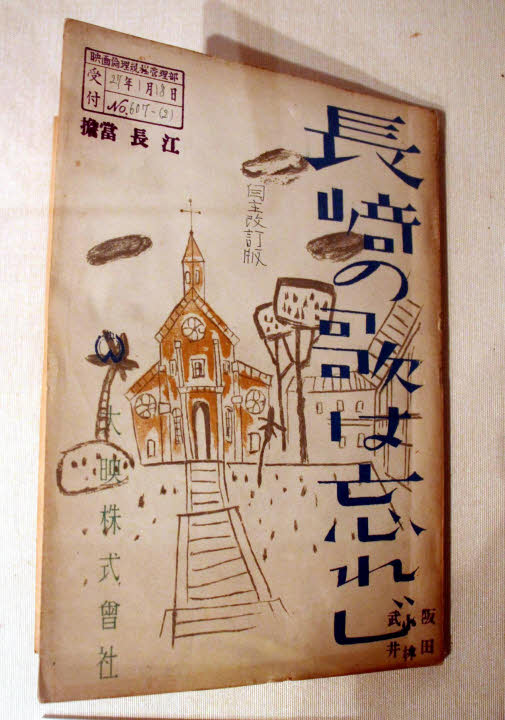 映画倫理規程管理部
受付
27年1月18日
No. 607-(2)
擔當 長江
長崎の歌は忘れじ
改訂版
大映株式會社
阪田
武井